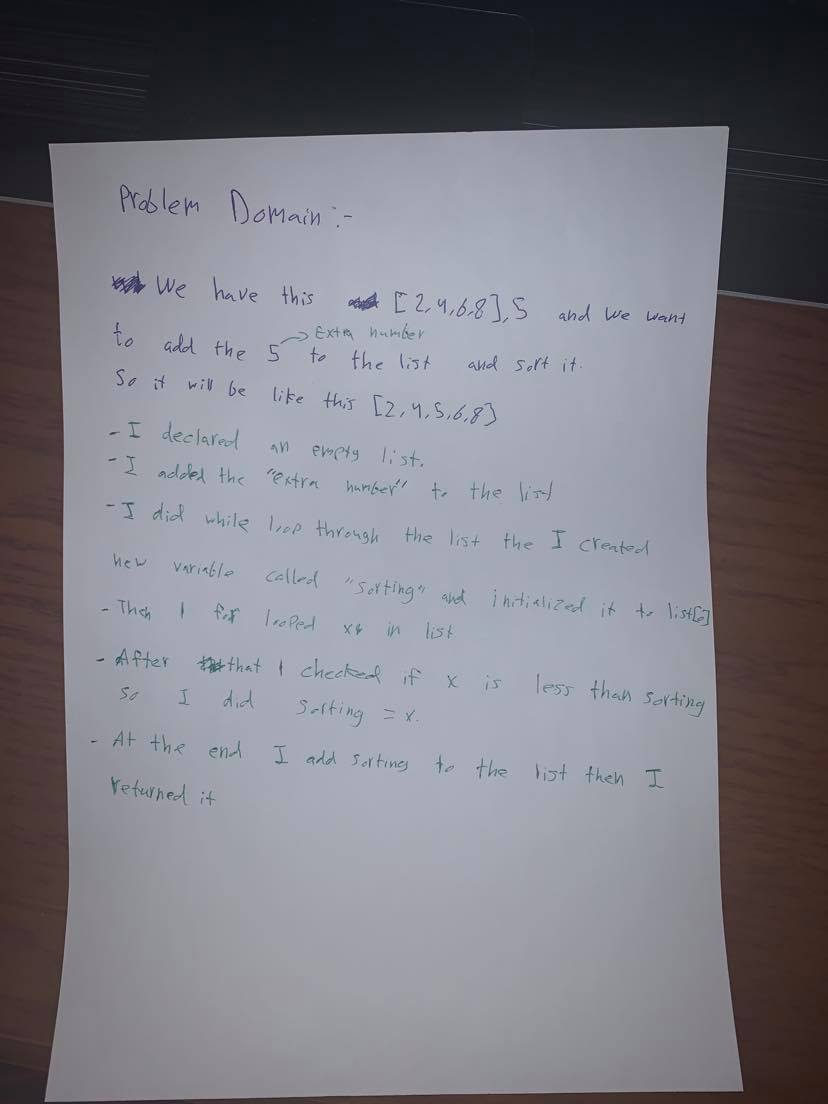 Problem Domain :-
We have this [2,4,6,8],5 and we want
Extra number
to add the 5 to the list and sort it.
So it will be like this [2,4,5,6,8}
- I declared an empty list.
- I added the "extra number" to the list
- I did while loop through the list the I created
new variable called "sorting" and initialized it to list[0]
- Then I for looped x in list
- After that I checked if x is less than sorting
so I did sorting = x.
- At the end I add sorting to the list then I
returned it